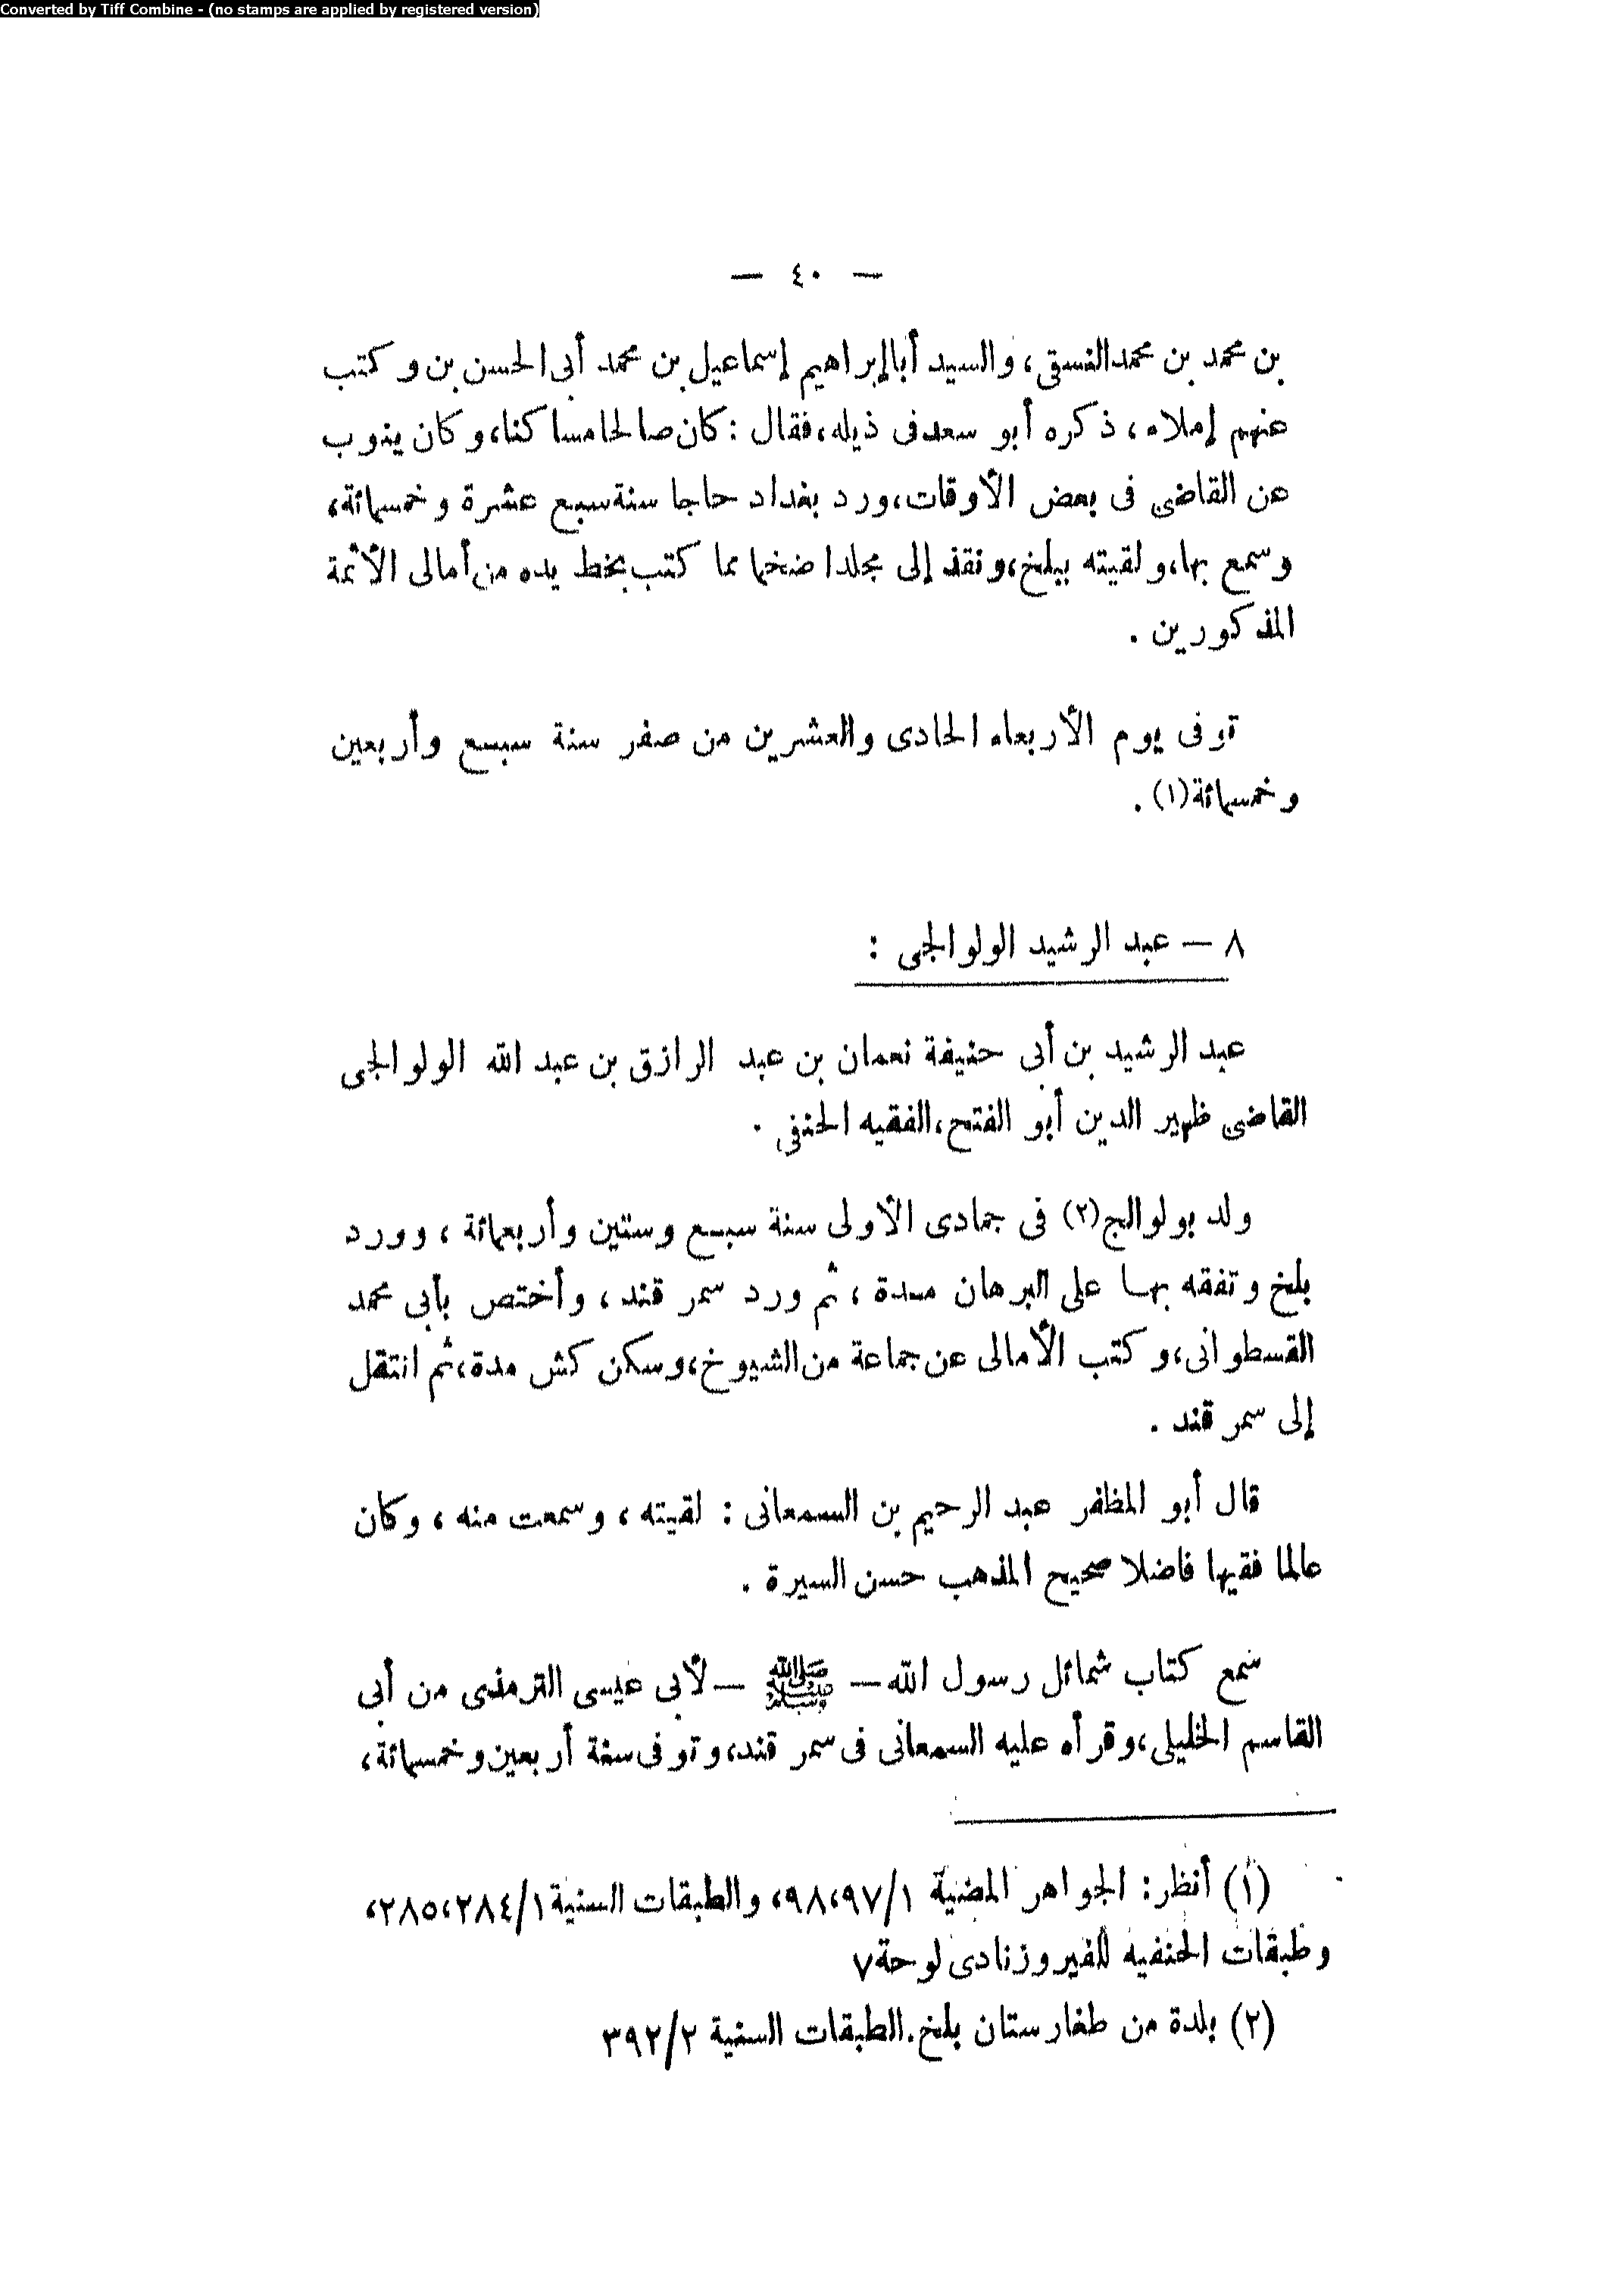 Converted by Tiff Combine - (no stamps are applied by registered version)
— ٤٠ —
بن محمد بن محمد النسقى، والسيد أبا إبراهيم إسماعيل بن محمد أبى الحسن بن وكتب
عنهم إملاء، ذكره أبو سعد فى ذيله، فقال : كان صالحا مسا كنا، وكان ينوب
عن القاضى فى بعض الأوقات، ورد بغداد حاجا سنة سبع عشرة وخمسمائة،
وسمع بها، ولقيته ببلخ، ونفذ إلى مجلدا ضخما مما كتب بخط يده من أمالى الأئمة
المذكورين .
توفى يوم الأربعاء الحادى والعشرين من صفر سنة سبع وأربعين
وخمسمائة(١) .
٨ — عبد الرشيد الولوالجى :
عبد الرشيد بن أبى حنيفة نعمان بن عبد الرازق بن عبد الله الولوالجى
القاضى ظهير الدين أبو الفتح، الفقيه الحنفى .
ولد بولوالج(٢) فى جمادى الأولى سنة سبع وستين وأربعمائة ، وورد
بلخ وتفقه بها على البرهان مدة ، ثم ورد سمر قند ، وأختص بأبى محمد
القسطوانى، وكتب الأمالى عن جماعة من الشيوخ، وسكن كش مدة، ثم انتقل
إلى سمر قند .
قال أبو المظفر عبد الرحيم بن السمعانى : لقيته ، وسمعت منه ، وكان
عالما فقيها فاضلا صحيح المذهب حسن السيرة .
سمع كتاب شمائل رسول الله — ﷺ — لأبى عيسى الترمذى من أبى
القاسم الخليلى، وقرأه عليه السمعانى فى سمر قند، وتوفى سنة أربعين وخمسمائة،
(١) أنظر: الجواهر المضية ٩٨،٩٧/١، والطبقات السنية ٢٨٥،٢٨٤/١،
وطبقات الحنفيه للفيروزنادى لوحة ٧
(٢) بلدة من طخارستان بلخ. الطبقات السنية ٣٩٢/٢